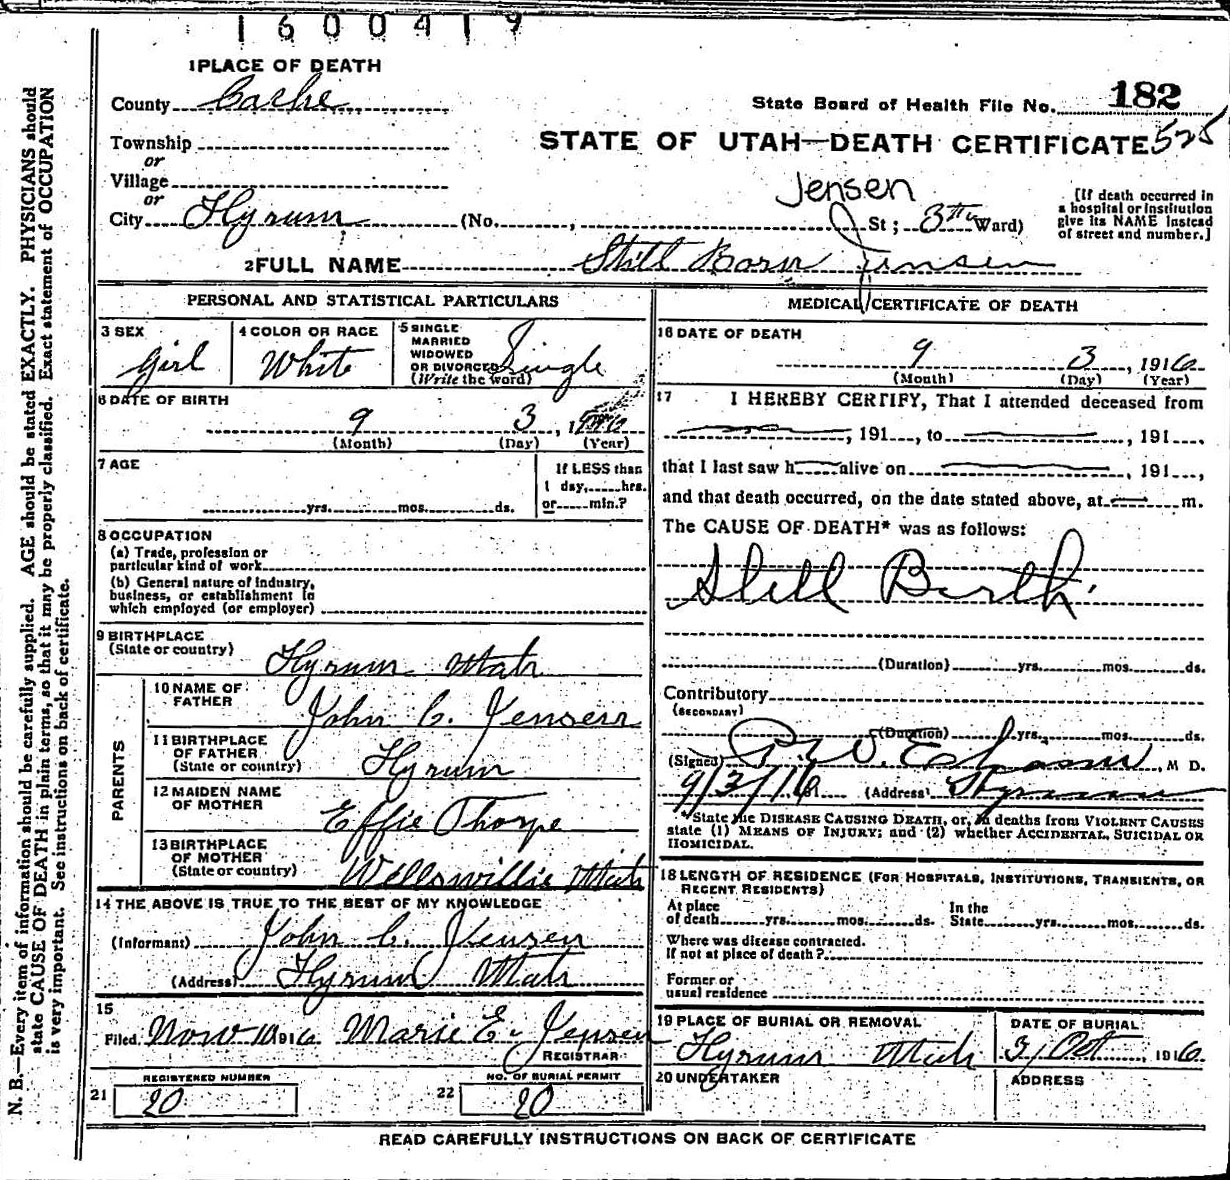 1600419
1 PLACE OF DEATH
County Cache
State Board of Health File No. 182
Township
STATE OF UTAH—DEATH CERTIFICATE 525
or
Village
or
Jensen
City Hyrum (No. , St ; 3rd Ward)
[If death occurred in
a hospital or institution
give its NAME instead
of street and number.]
2 FULL NAME Still Born Jensen
PERSONAL AND STATISTICAL PARTICULARS
3 SEX Girl
4 COLOR OR RACE White
5 SINGLE
MARRIED
WIDOWED
OR DIVORCED Single
(Write the word)
6 DATE OF BIRTH
9 3 , 1916
(Month) (Day) (Year)
7 AGE
yrs. mos. ds.
If LESS than
1 day, hrs.
or min.?
8 OCCUPATION
(a) Trade, profession or
particular kind of work
(b) General nature of industry,
business, or establishment in
which employed (or employer)
9 BIRTHPLACE
(State or country) Hyrum Utah
PARENTS
10 NAME OF
FATHER John C. Jensen
11 BIRTHPLACE
OF FATHER
(State or country) Hyrum
12 MAIDEN NAME
OF MOTHER Effie Thorpe
13 BIRTHPLACE
OF MOTHER
(State or country) Wellsville Utah
14 THE ABOVE IS TRUE TO THE BEST OF MY KNOWLEDGE
(Informant) John C. Jensen
(Address) Hyrum Utah
15
Filed Nov 10 1916 Marie E. Jensen
REGISTRAR
21 REGISTERED NUMBER
20
22 NO. OF BURIAL PERMIT
20
MEDICAL CERTIFICATE OF DEATH
16 DATE OF DEATH
9 3 , 1916
(Month) (Day) (Year)
17 I HEREBY CERTIFY, That I attended deceased from
, 191 , to , 191 ,
that I last saw h alive on , 191 ,
and that death occurred, on the date stated above, at m.
The CAUSE OF DEATH* was as follows:
Still Birth
(Duration) yrs. mos. ds.
Contributory
(SECONDARY)
(Duration) yrs. mos. ds.
(Signed) M D.
9/3/16 191 (Address) Hyrum
*State the DISEASE CAUSING DEATH, or, in deaths from VIOLENT CAUSES
state (1) MEANS OF INJURY; and (2) whether ACCIDENTAL, SUICIDAL OR
HOMICIDAL.
18 LENGTH OF RESIDENCE (FOR HOSPITALS, INSTITUTIONS, TRANSIENTS, OR
RECENT RESIDENTS)
At place
of death yrs. mos. ds.
In the
State yrs. mos. ds.
Where was disease contracted.
If not at place of death?
Former or
usual residence
19 PLACE OF BURIAL OR REMOVAL
Hyrum Utah
DATE OF BURIAL
3/Oct , 1916
20 UNDERTAKER
ADDRESS
READ CAREFULLY INSTRUCTIONS ON BACK OF CERTIFICATE
N. B.—Every item of information should be carefully supplied. AGE should be stated EXACTLY. PHYSICIANS should
state CAUSE OF DEATH in plain terms, so that it may be properly classified. Exact statement of OCCUPATION
is very important. See instructions on back of certificate.